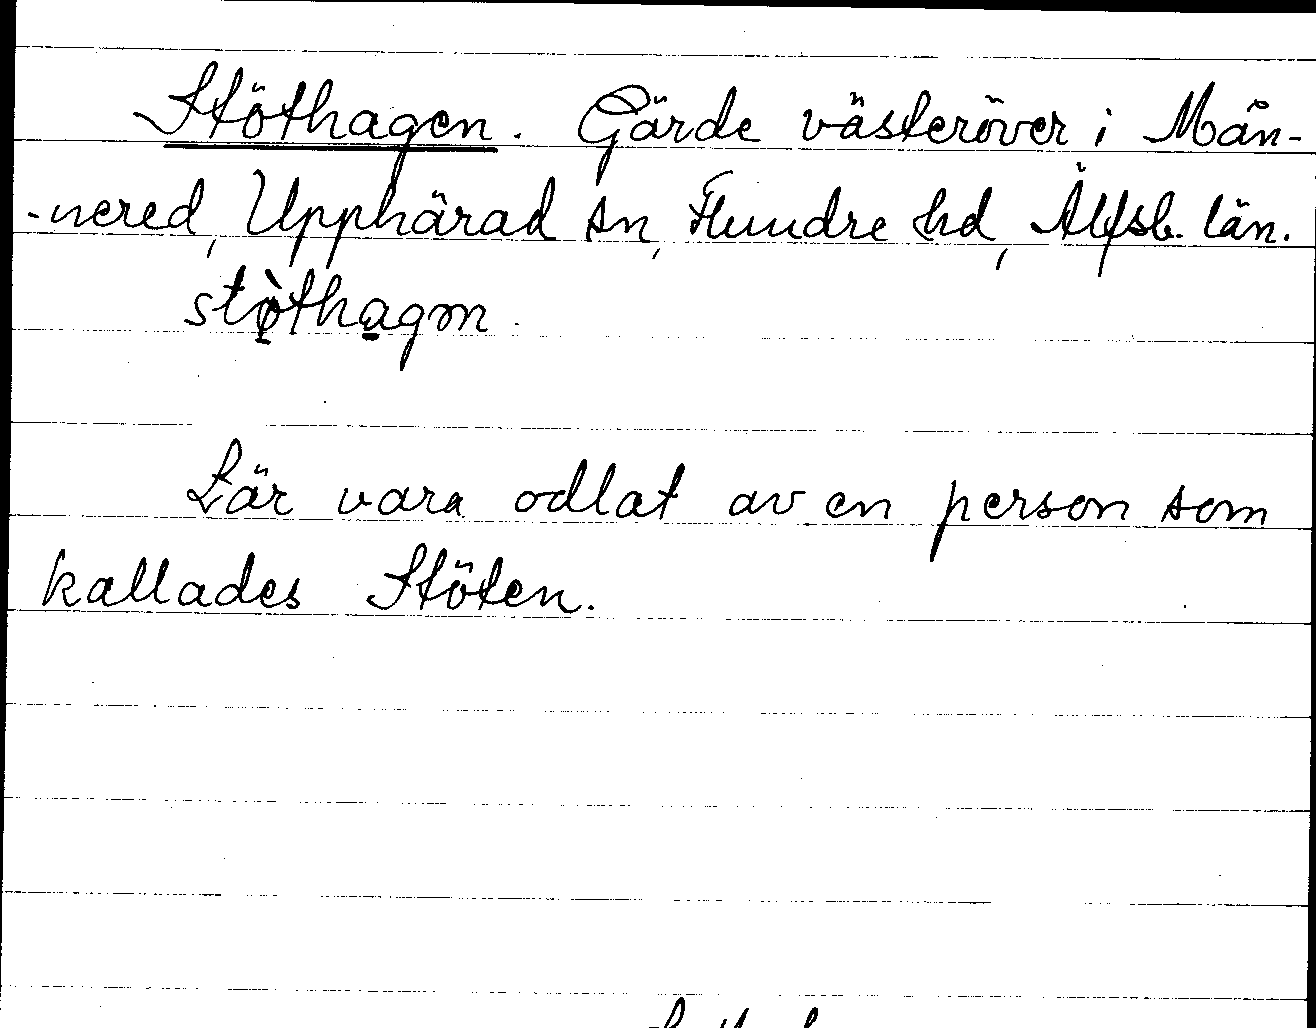 Stöthagen. Gärde västeröver i Mån-
-nered, Upphärad sn, Flundre hd, Älfsb. län.
stòthagm.
Lär vara odlat av en person som
kallades Stöten.